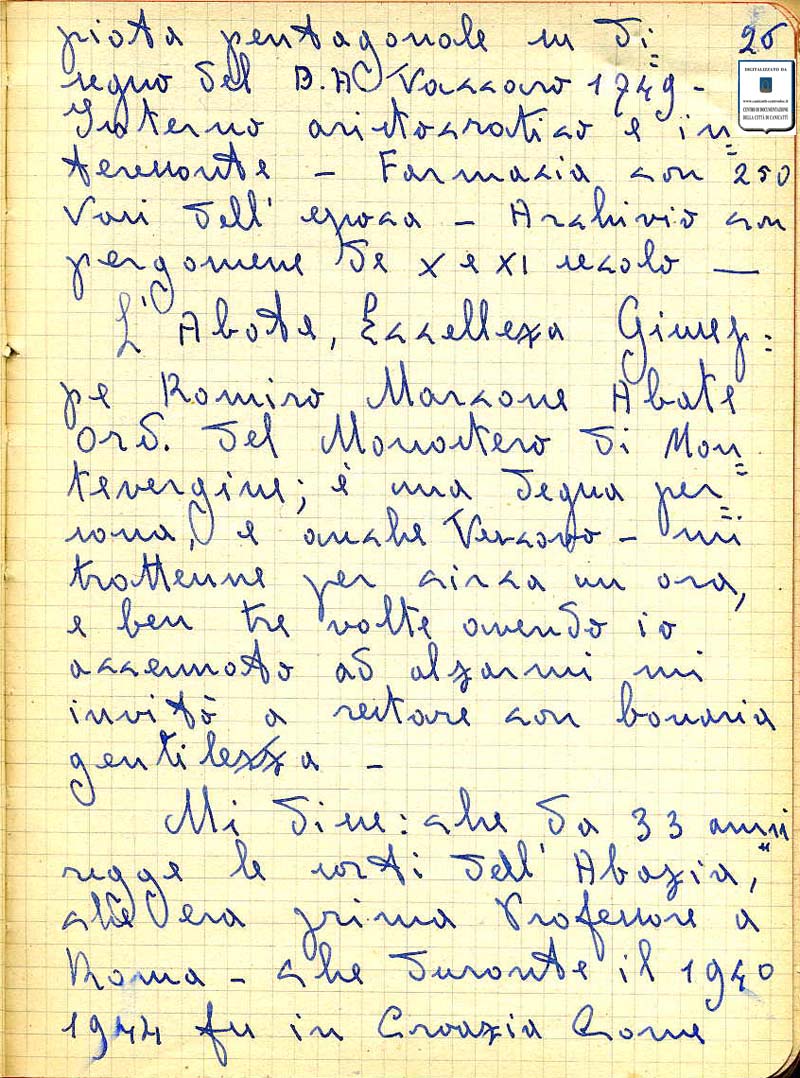 pianta pentagonale su di= 26
segno del D. A. Vaccaro 1749 -
DIGITALIZZATO DA
www.canicatti-centrodoc.it
CENTRO DI DOCUMENTAZIONE
DELLA CITTÀ DI CANICATTÌ
Interno aristocratico e in=
teressante - Farmacia con 250
Vasi dell' epoca - Archivio con
pergamene de X e XI secolo —
L' Abate, Eccelleza Giusep=
pe Romiro Marcone Abate
Ord. del Monastero di Mon=
tevergine; è una degna per=
sona, e anche Vescovo - mi
trattenne per circa un ora,
e ben tre volte avendo io
accennato ad alzarmi mi
invitò a restare con bonaria
gentilezza -
Mi disse: che da 33 anni
regge le sorti dell' Abazia,
che era prima Professore a
Roma - che durante il 1940
1944 fu in Croazia Come